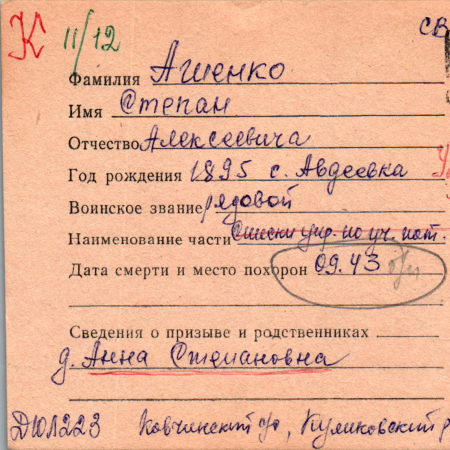 К 11/12 СВ
Фамилия Ашенко
Имя Степан
Отчество Алексеевича
Год рождения 1895 с. Авдеевка
Воинское звание рядовой
Наименование части Списки упр. по уч. пот.
Дата смерти и место похорон 09.43 б/п
Сведения о призыве и родственниках
д. Анна Степановна
ДЮЛ223 Ковчинский с/с, Куликовский р